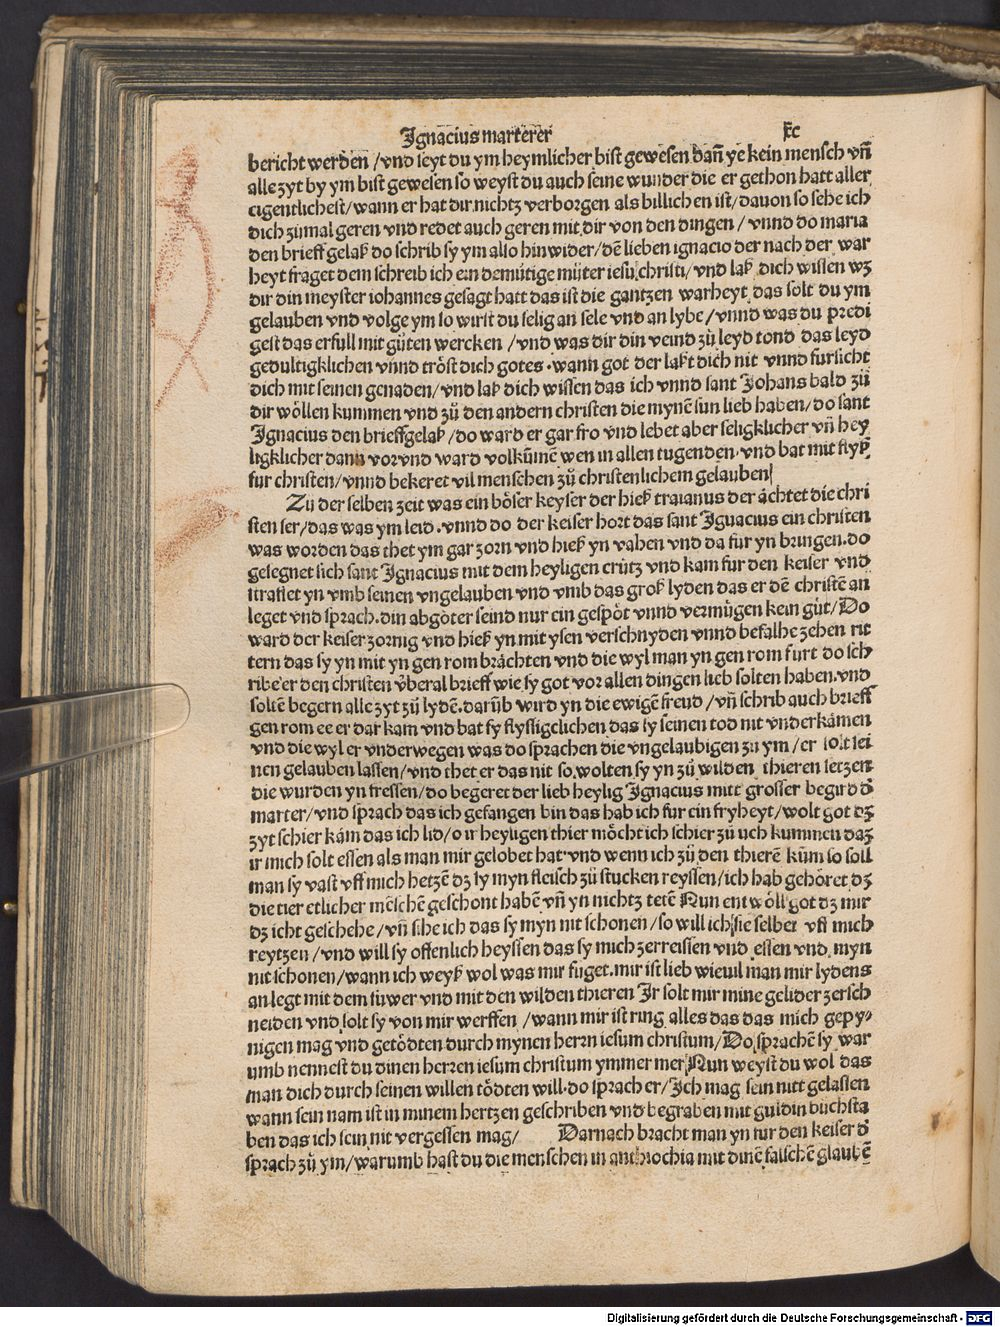 Ignacius marterer
bericht werden /vnd seyt du ym heymlicher bist gewesen dañ ye kein mensch vñ
alle zyt by ym bist gewesen so weyst du auch seine wunder die er gethon hatt aller
eigentlichest/wann er hat dir nichtz verborgen als billich en ist/dauon so sehe ich
dich zůmal geren vnd redet auch geren mit dir von den dingen / vnnd do maria
den brieff gelaß do schrib sy ym also hinwider/dē lieben ignacio der nach der war
heyt fraget dem schreib ich ein demütige můter iesu christi/vnd laß dich wissen wz
dir din meyster iohannes gesagt hatt das ist die gantzen warheyt das solt du ym
gelauben vnd volge ym so wirst du selig an sele vnd an lybe/vnnd was du predi
gest das erfull mit gůten wercken /vnd was dir din veind zů leyd tond das leyd
gedultigklichen vnnd tröst dich gotes.wann got der laßt dich nit vnnd fursicht
dich mit seinen genaden/vnd laß dich wissen das ich vnnd sant Johans bald zů
dir wöllen kummen vnd zů den andern christen die mynē sun lieb haben/do sant
Ignacius den brieff gelaß/do ward er gar fro vnd lebet aber seligklicher vñ hey
ligklicher dann vor vnd ward volkūmē wen in allen tugenden.vnd bat mit flyß
fur christen/vnnd bekeret vil menschen zů christenlichem gelauben/
Zů der selben zeit was ein böser keyser der hieß traianus der ächtet die chri
sten ser/das was ym leid.vnnd do der keiser hort das sant Ignacius ein christen
was worden das thet ym gar zorn vnd hieß yn vahen vnd da fur yn bringen.do
gesegnet sich sant Ignacius mit dem heyligen crütz vnd kam fur den keiser vnd
straffet yn vmb seinen vngelauben vnd vmb das groß lyden das er dē christē an
leget vnd sprach.din abgöter seind nur ein gespöt vnnd vermügen kein gůt/Do
ward der keiser zornig vnd hieß yn mit ysen verschnyden vnnd befalhe zehen rit
tern das sy yn mit yn gen rom brächten vnd die wyl man yn gen rom furt do sch
ribe er den christen v̈beral brieff wie sy got vor allen dingen lieb solten haben.vnd
soltē begern alle zyt zů lydē.darūb wird yn die ewigē freud/vñ schrib auch brieff
gen rom ee er dar kam vnd bat sy flyssigclichen das sy seinen tod nit vnderkämen
vnd die wyl er vnderwegen was do sprachen die vngelaubigen zu ym/er solt sei
nen gelauben lassen/vnd thet er das nit so wolten sy yn zů wilden thieren setzen
die wurden yn fressen/do begeret der lieb heylig Ignacius mitt grosser begird d̄
marter/vnd sprach das ich gefangen bin das hab ich fur ein fryheyt/wolt got dz
zyt schier käm das ich lid/o ir heyligen thier möcht ich schier zů uch kummen daz
ir mich solt essen als man mir gelobet hat.vnd wenn ich zů den thierē kūm so soll
man sy vast vff mich hetzē dz sy myn fleisch zů stucken reyssen/ich hab gehöret dz
die tier etlicher mēschē geschont habē vñ yn nichtz tetē Nun enwöll got dz mir
dz icht geschehe/vñ sihe ich das sy myn nit schonen/so will ich sie selber vff mich
reytzen/vnd will sy offenlich heyssen das sy mich zerreissen vnd essen vnd myn
nit schonen/wann ich weyß wol was mir fuget.mir ist lieb wieuil man mir lydens
an legt mit dem füwer vnd mit den wilden thieren Ir solt mir mine gelider zersch
neiden vnd solt sy von mir werffen /wann mir ist ring alles das das mich gepy⸗
nigen mag vnd getödten durch mynen herrn iesum christum/Do sprachē sy war
umb nennest du dinen herren iesum christum ymmer mer/Nun weyst du wol das
man dich durch seinen willen tödten will.do sprach er/Ich mag sein nitt gelassen
wann sein nam ist in minem hertzen geschriben vnd begraben mit guldin büchsta
ben das ich sein nit vergessen mag/ Darnach bracht man yn fur den keiser d̄
sprach zů ym/warumb hast du die menschen in anthiochia mit dinē falschē glaubē
Digitalisierung gefördert durch die Deutsche Forschungsgemeinschaft - DFG